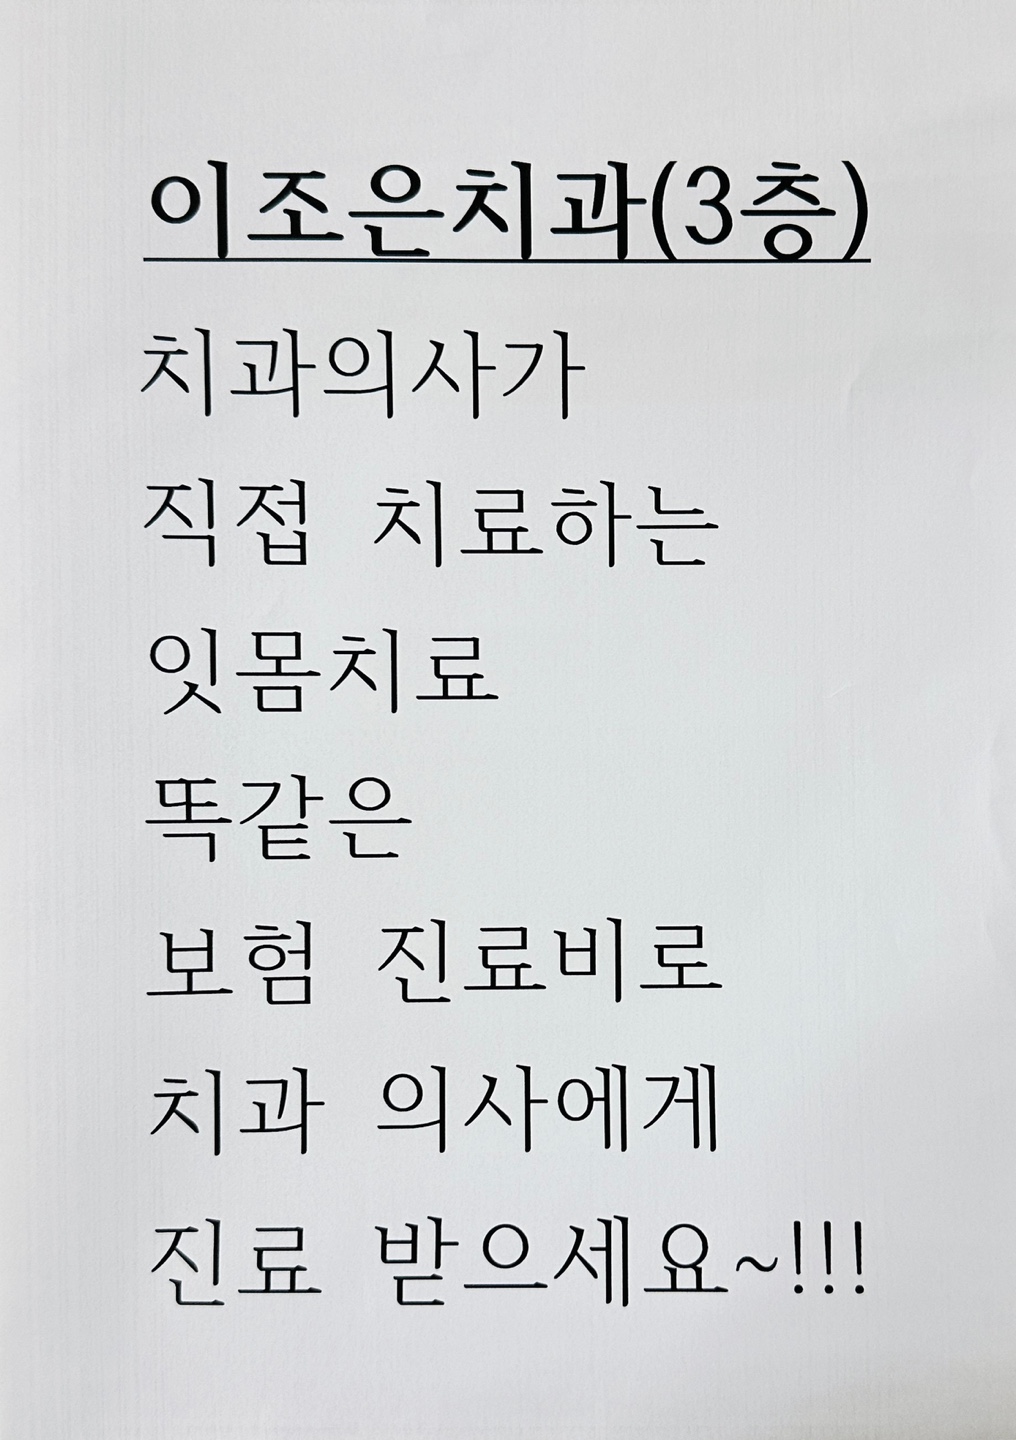 이조은치과(3층)
치과의사가
직접 치료하는
잇몸치료
똑같은
보험 진료비로
치과 의사에게
진료 받으세요~!!!